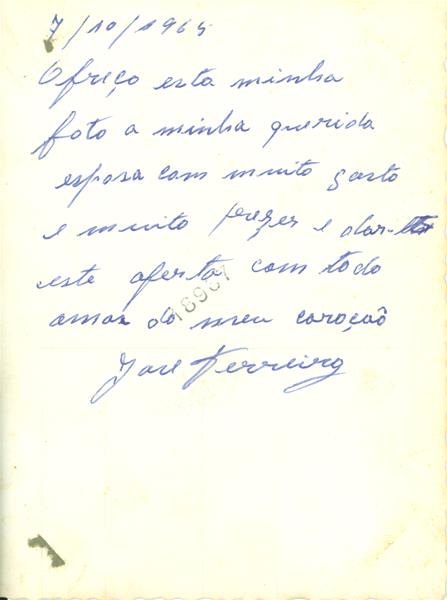 7/10/1965
Ofreço esta minha
foto a minha querida
esposa com muito gosto
e muito prezer e dar-lhe
este oferta com todo
amor do meu coração
18987
José Ferreira